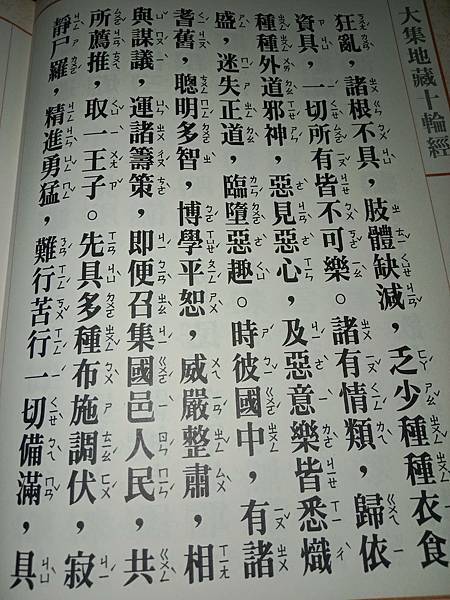 大集地藏十輪經
狂亂，諸根不具，肢體缺減，乏少種種衣食
資具，一切所有皆不可樂。諸有情類，歸依
種種外道邪神，惡見惡心，及惡意樂皆悉熾
盛，迷失正道，臨墮惡趣。時彼國中，有諸
耆舊，聰明多智，博學平恕，威嚴整肅，相
與謀議，運諸籌策，即便召集國邑人民，共
所薦推，取一王子。先具多種布施調伏，寂
靜尸羅，精進勇猛，難行苦行一切備滿，具